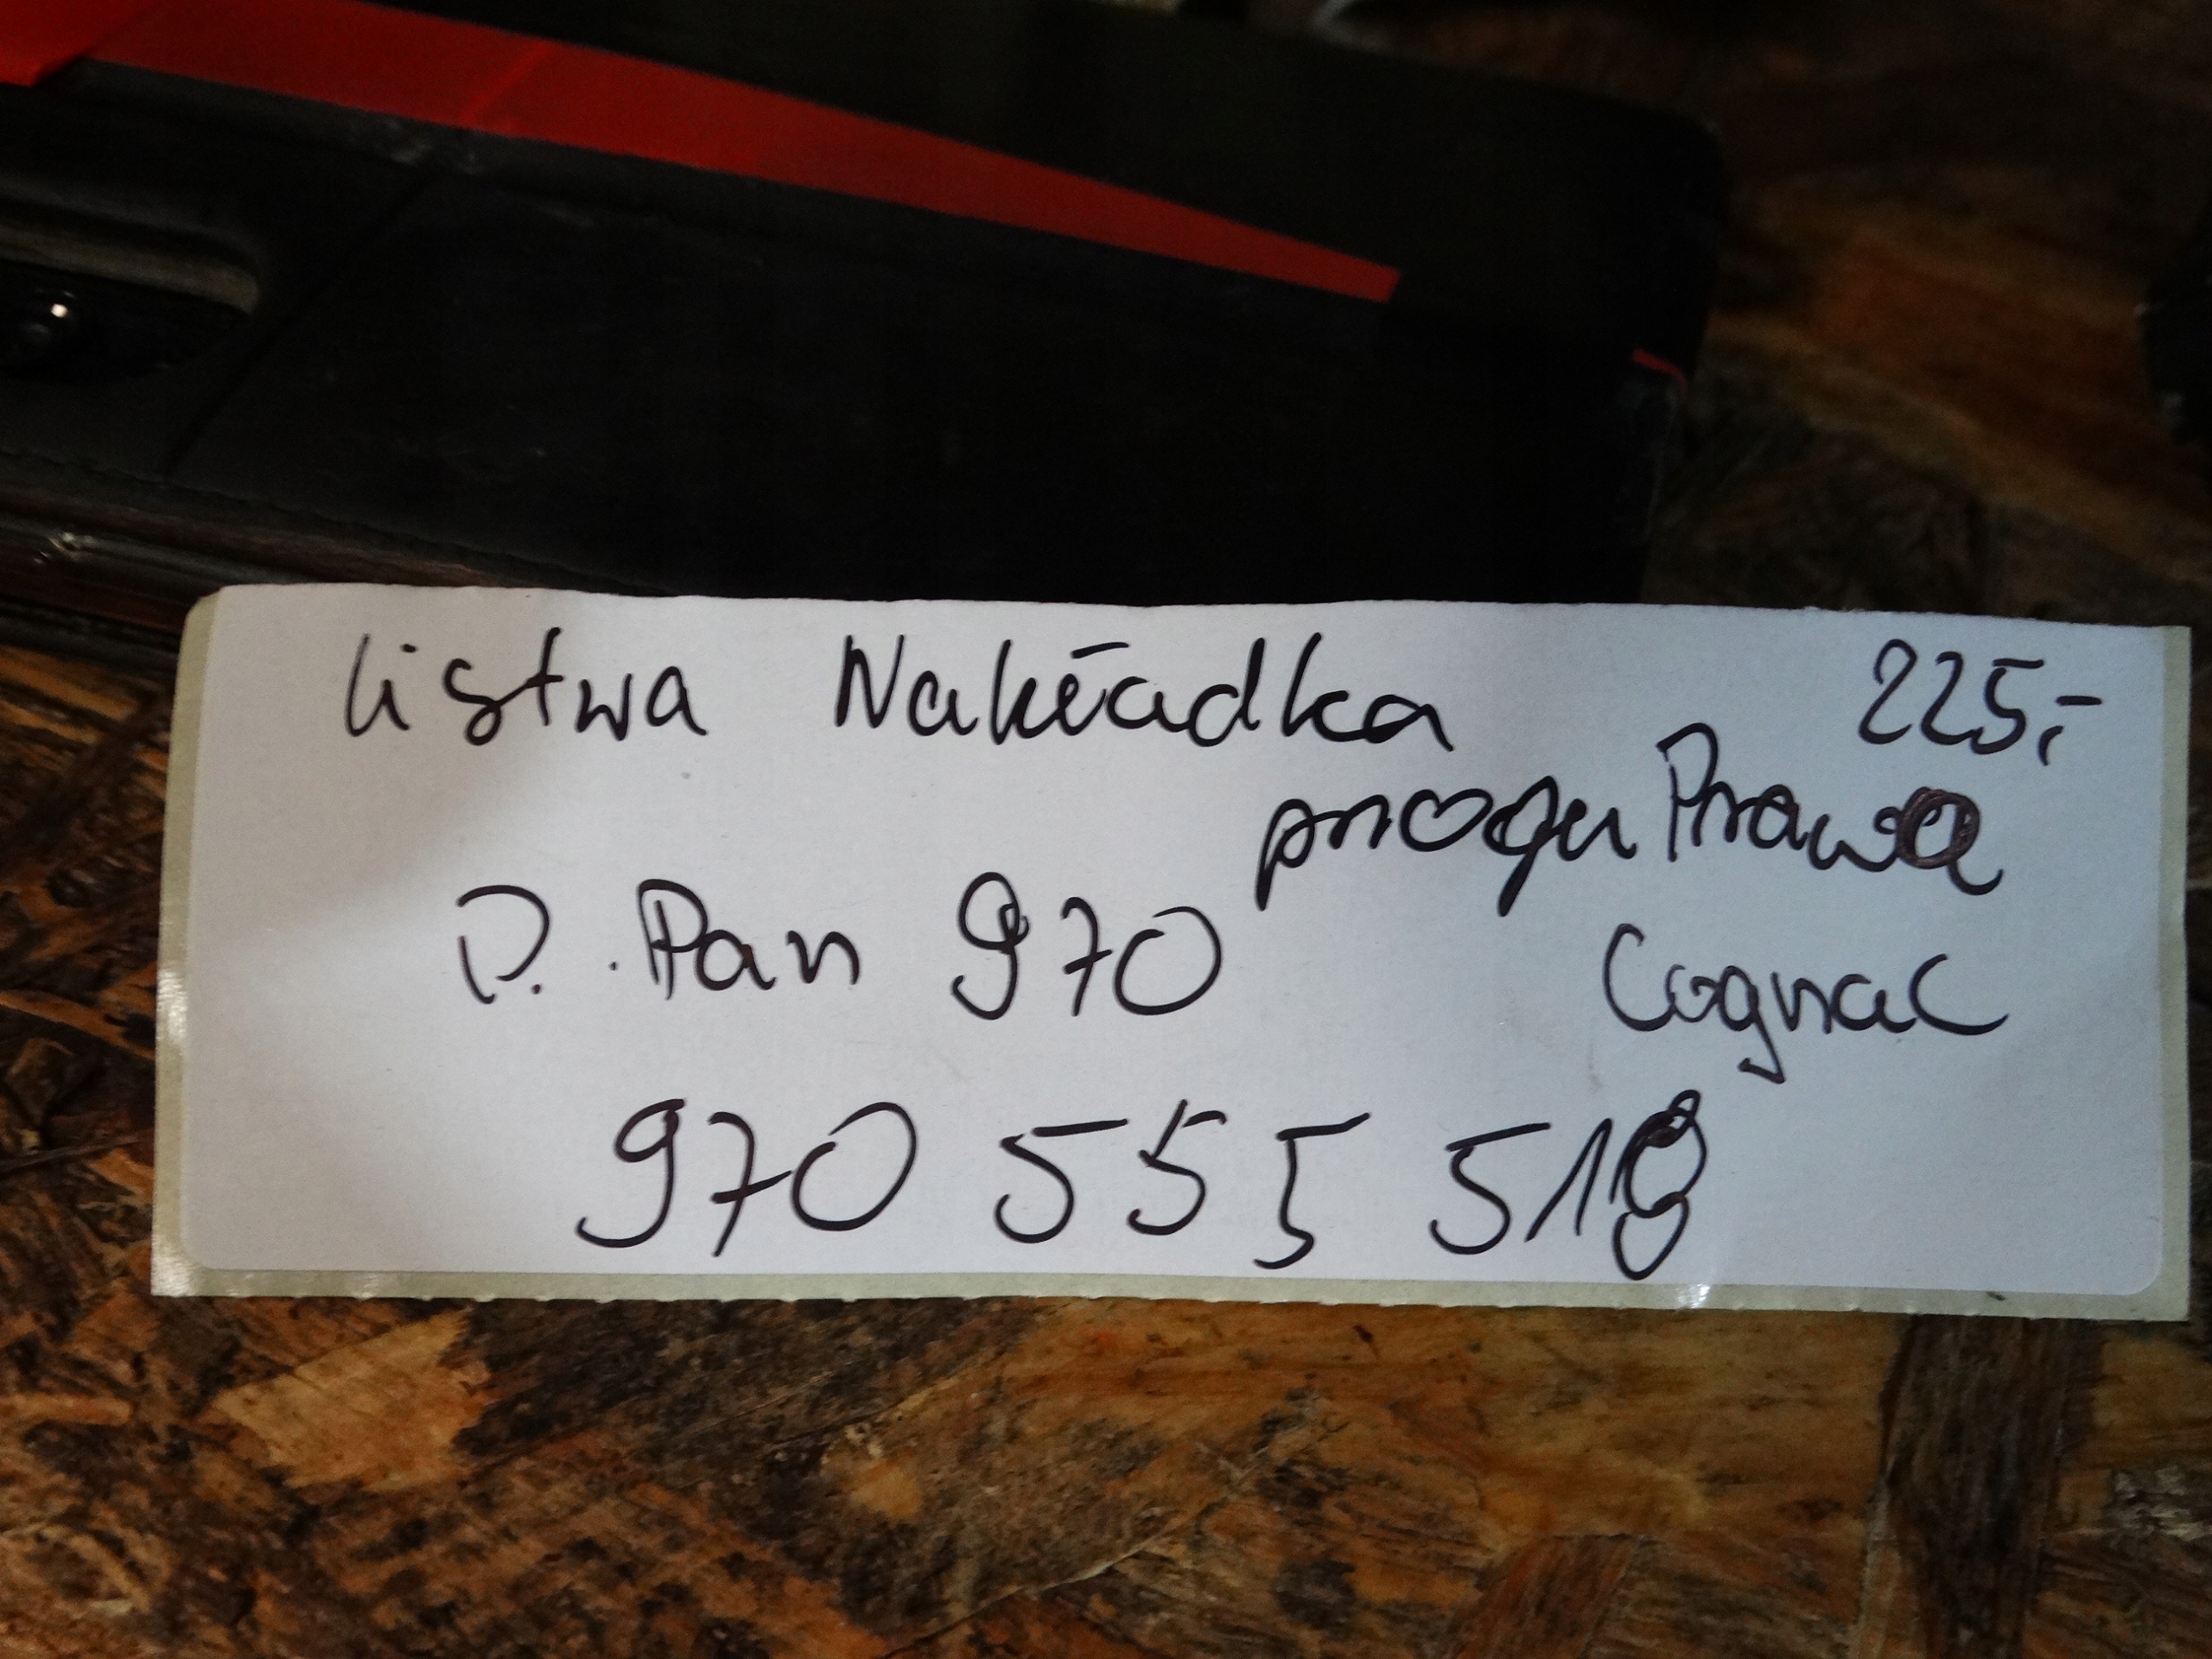 Listwa Nakładka 225,-
progu Prawa
P. Pan 970 Cognac
970 555 518